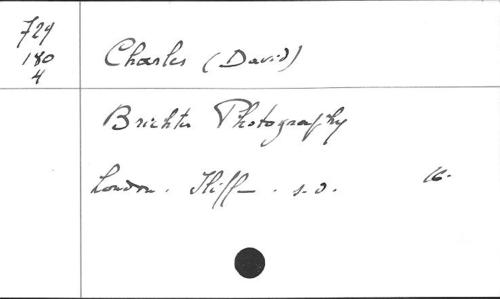 729
180
4
Charles (David)
Brichter Photography
London. Iliffe. s.d.
16.